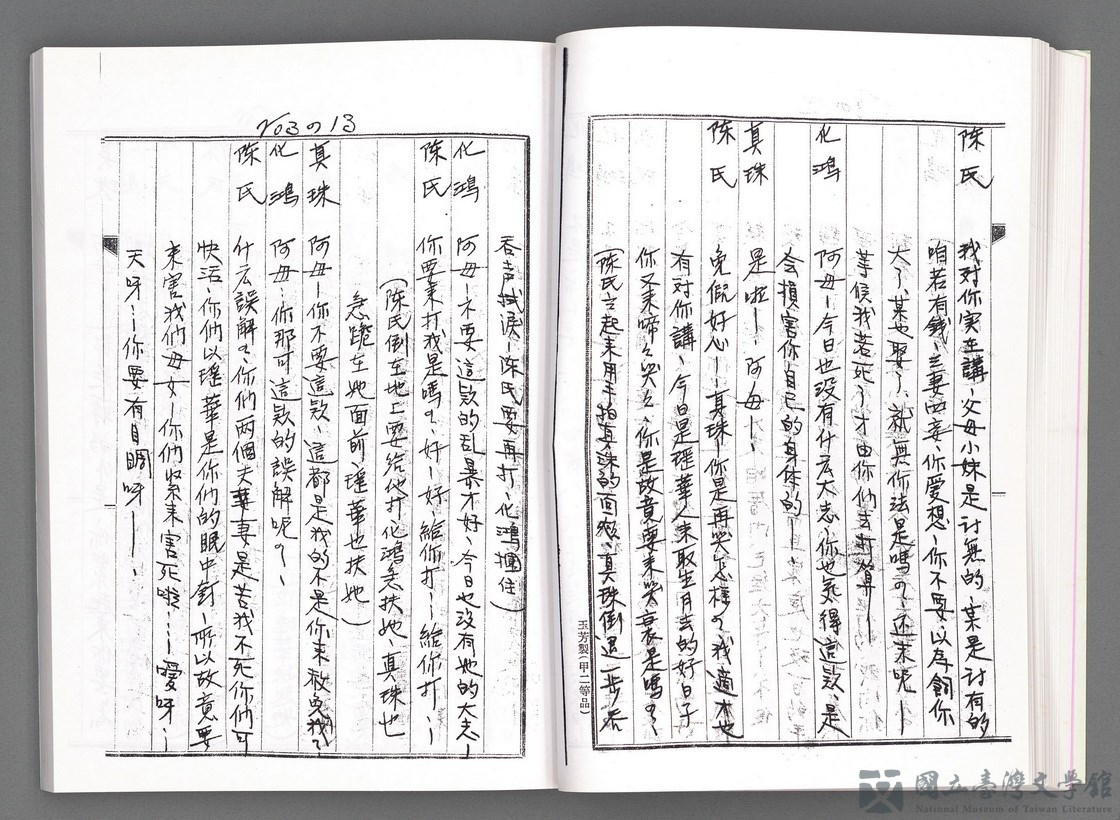 陳氏　我对你实在講、父母小妹是討無的、某是討有的
咱若有錢、三妻四妾、你愛想、你不要、以為飼你
大了、某也娶了、就無你法是嗎？、还未呢—
等候我若死了、才由你們去打算—
化鴻　阿母—今日也没有什么大志、你也気得這款、是
会損害你自已的身体的—
真珠　是啦—阿母—
陳氏　免假好心—真珠—你是再哭怎樣？我適才也
有对你講、今日是瑶華人来取生月去的好日子
你又来啼々哭々、你是故意要来哭衰是嗎？、
（陳氏立起来用手拍真珠的面頰、真珠倒退一步吞
玉芳製(甲二等品)
Vo3の13
吞声拭淚—陳氏要再打、化鴻擋住）
化鴻　阿母—不要這款的乱暴才好、今日也没有她的大志—
陳氏　你要来打我是嗎？、好—好—給你打—給你打—
（陳氏倒在地上要給他打化鴻急扶她　真珠也
急跪在她面前、瑶華也扶她）
真珠　阿母—你不要這款、這都是我的不是你来赦免我
化鴻　阿母—你那可這款的誤解呢？、
陳氏　什么誤解？、你們兩個夫妻是苦我不死你們可
快活、你們以瑶華是你們的眼中釘—所以故意要
来害我們母女—你們坚来害死啦……噯呀…
天呀……你要有目睭呀—
國立臺灣文學館
National Museum of Taiwan Literature